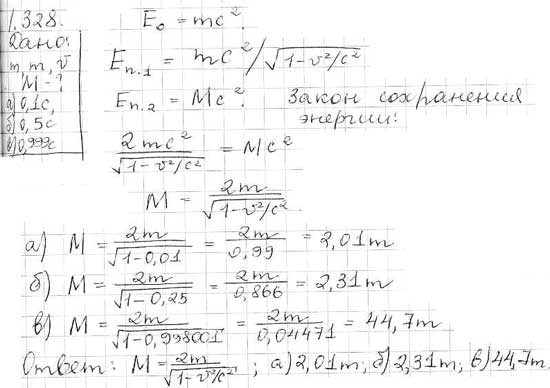 1.328.
Дано:
m, m, v
M - ?
а) 0,1c,
б) 0,5c
в) 0,999c
E₀ = mc².
Eп.1 = mc²/√(1-v²/c²)
Eп.2 = Mc². Закон сохранения
энергии:
2mc²/√(1-v²/c²) = Mc²
M = 2m/√(1-v²/c²).
а) M = 2m/√(1-0,01) = 2m/0,99 = 2,01m
б) M = 2m/√(1-0,25) = 2m/0,866 = 2,31m
в) M = 2m/√(1-0,998001) = 2m/0,04471 = 44,7m
Ответ: M = 2m/√(1-v²/c²); а) 2,01m; б) 2,31m; в) 44,7m.